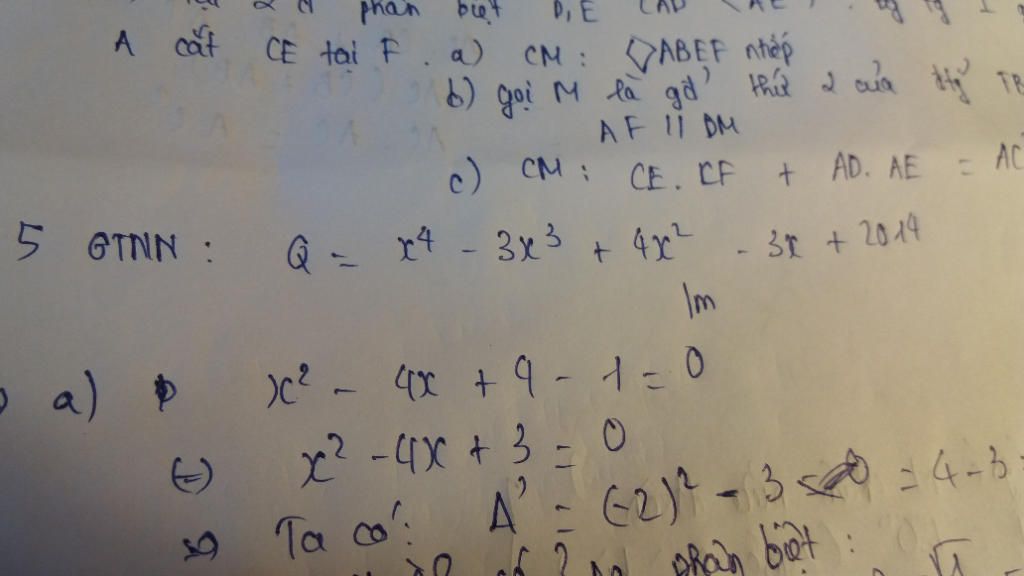 2 phân biệt D, E (AD < AE).
A cắt CE tại F. a) CM: ◇ABEF ntiếp
b) gọi M là gđ' thứ 2 của
AF // DM
c) CM: CE. CF + AD. AE = AC
5 GTNN: Q = x⁴ - 3x³ + 4x² - 3x + 2014
lm
a) x² - 4x + 4 - 1 = 0
(=) x² - 4x + 3 = 0
=> Ta có: Δ' = (-2)² - 3 = 4 - 3
phân biệt:
√1 =